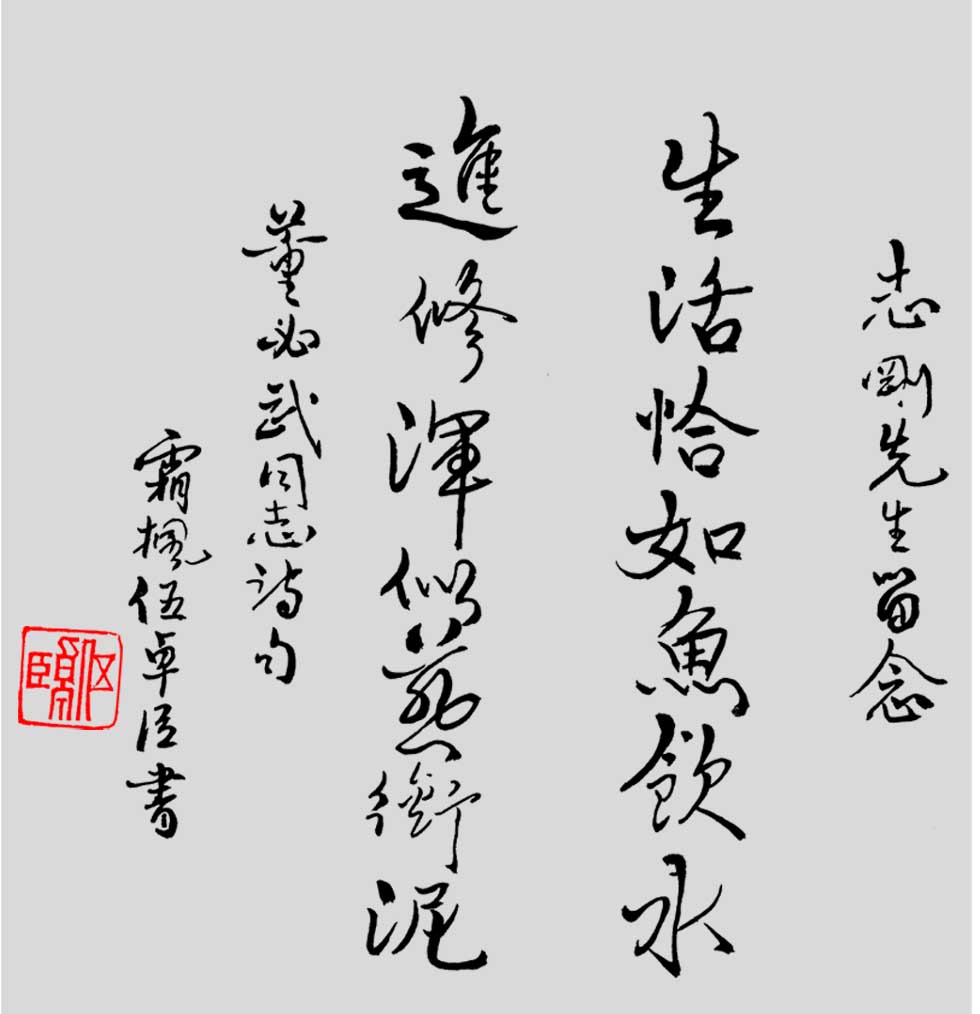 志剛先生留念
生活恰如魚飲水
進修渾似燕銜泥
董必武同志詩句
霜楓伍卓臣書